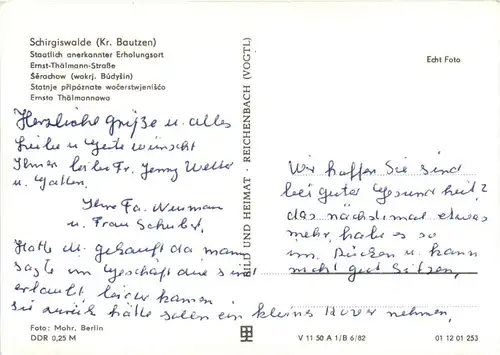 Schirgiswalde (Kr. Bautzen)
Staatlich anerkannter Erholungsort
Ernst-Thälmann-Straße
Šěrachow (wokrj. Budyšin)
Statnje připóznate wočerstwjenišćo
Ernsta Thälmannowa
Echt Foto
Herzliche Grüße u. alles
liebe u. Gute wünscht
Ihnen liebe Fr. Jenny
u. Gatten.
Ihre Fa. Neuman
u. Frau Schubert.
Hatte gekauft da man
sagte im Geschäft die sind
erlaubt, leider kamen
Sie zurück hätte sollen ein kleines nehmen,
BILD UND HEIMAT · REICHENBACH (VOGTL)
Wir hoffen Sie sind
bei guter Gesundheit?
das nächstemal etwas
mehr, habe es so
im Rücken u. kann
nicht gut Sitzen,
Foto: Mohr, Berlin
DDR 0,25 M
V 11 50 A 1/B 6/82
01 12 01 253